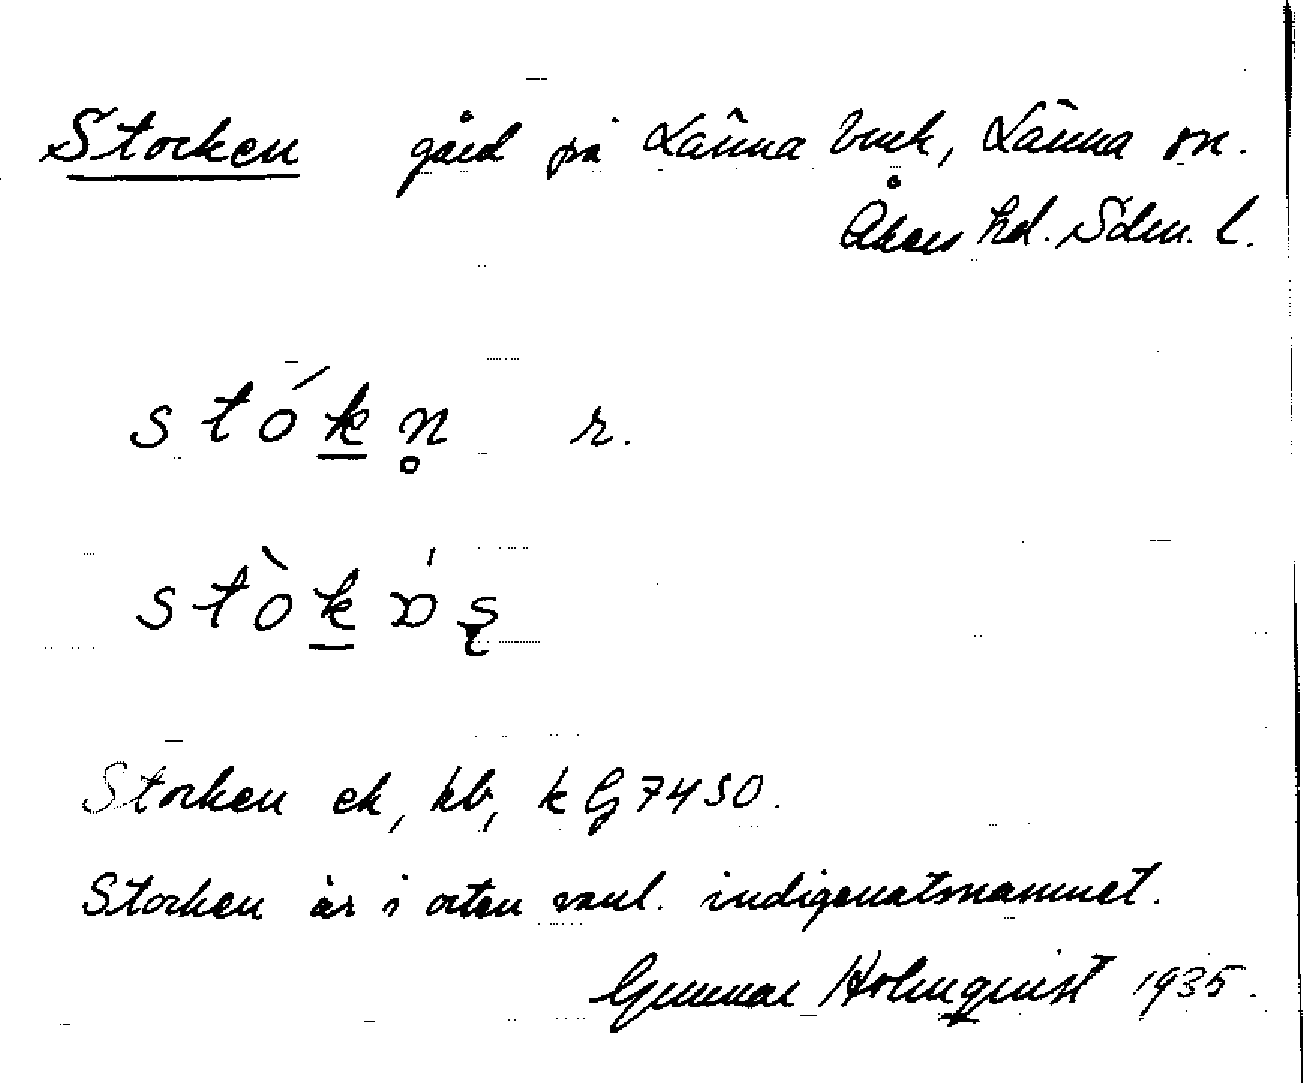 Stocken gård på Länna bruk, Länna sn.
Åkers hd. Södm. l.
stók̲n̥ r.
stòk̲ɒ́ş
Stocken ek, kb, k Eg 7450.
Stocken är i orten vanl. indigenatsnamnet.
Gunnar Holmquist 1935.